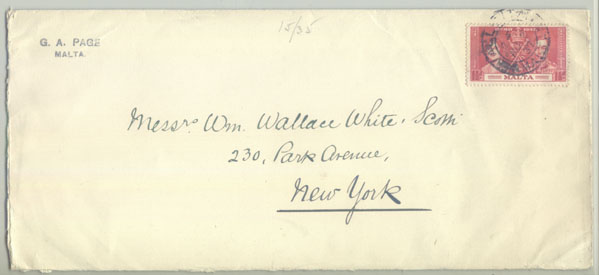 15/35
G. A. PAGE
MALTA.
MALTA
Messrs Wm. Wallace White,
230, Park Avenue,
New York